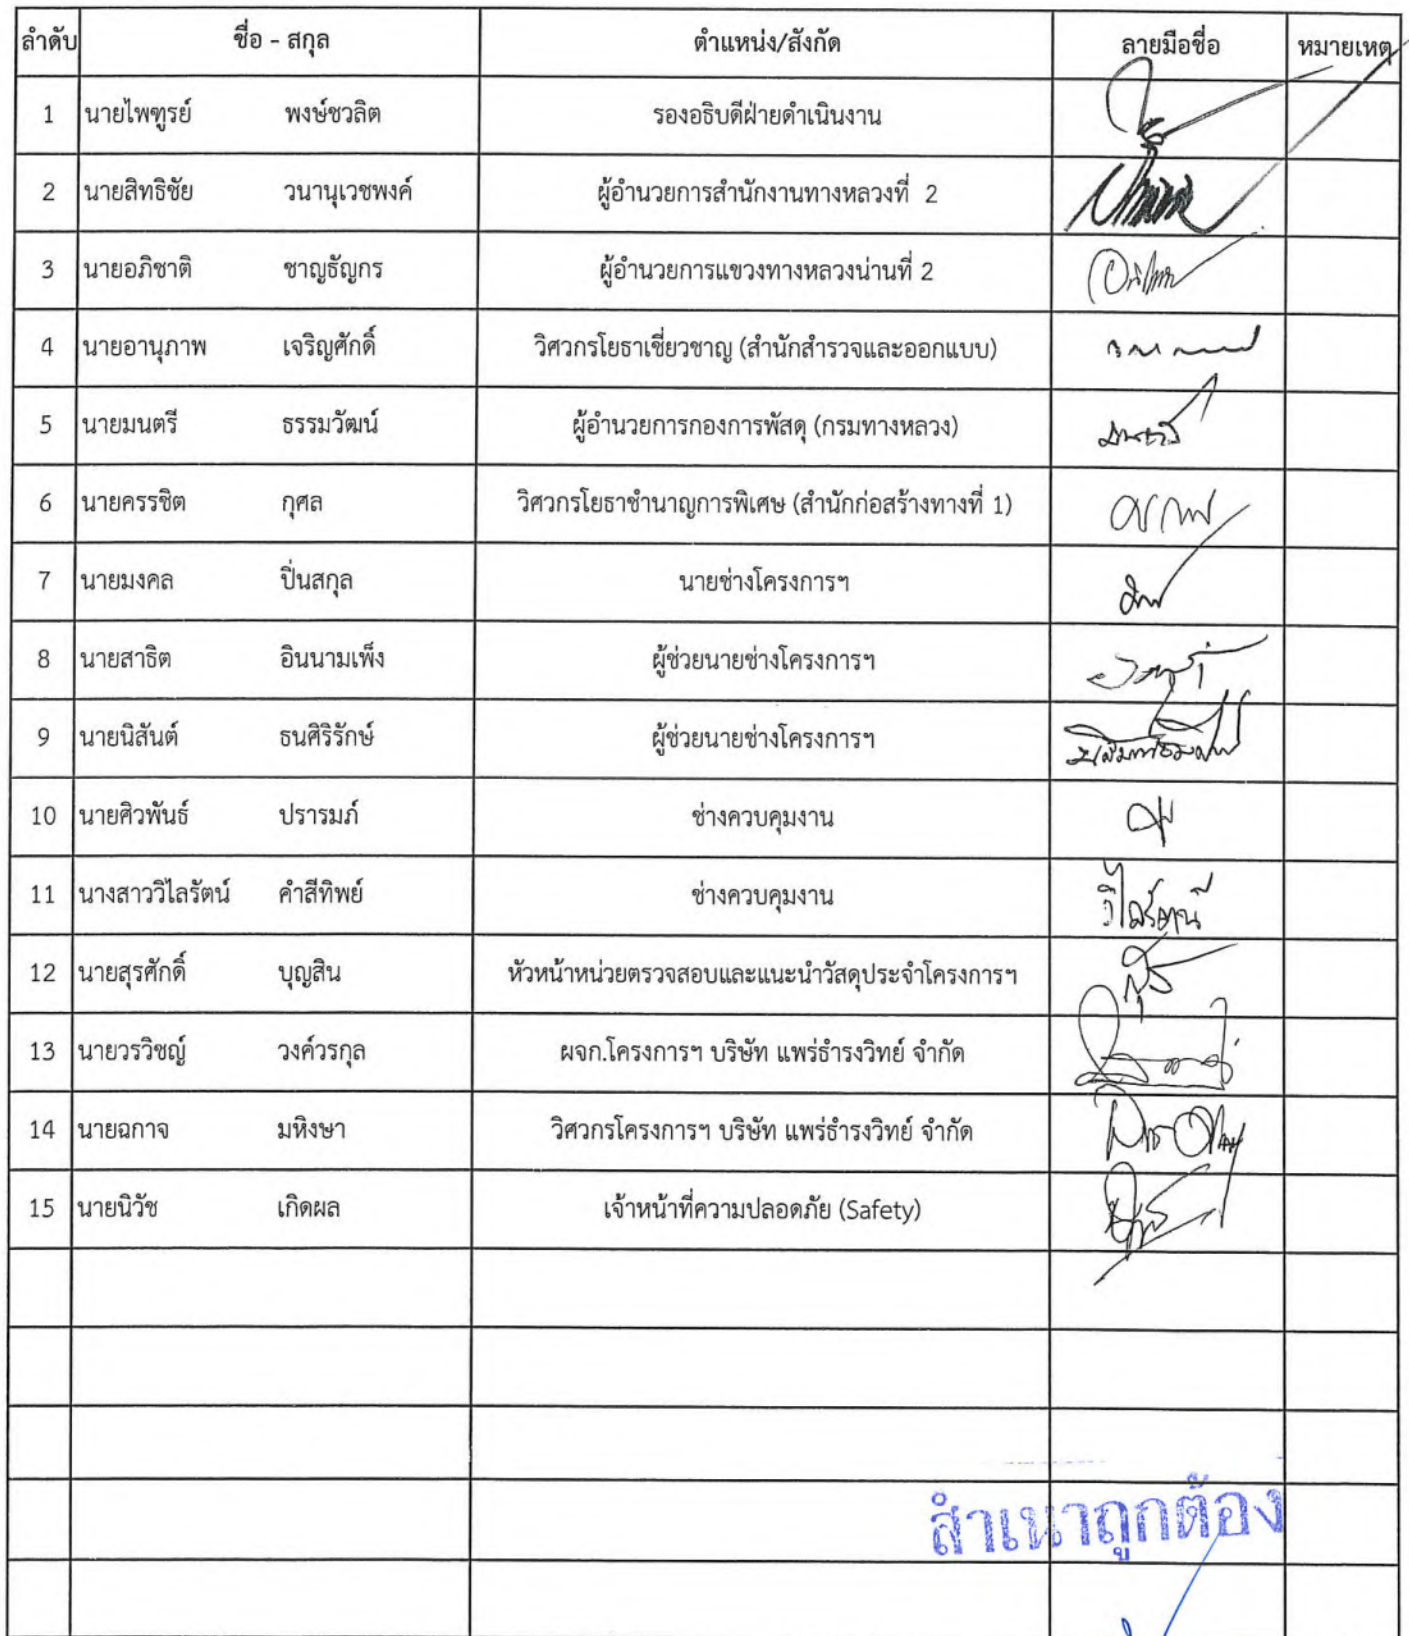 ลำดับ ชื่อ - สกุล ตำแหน่ง/สังกัด ลายมือชื่อ หมายเหตุ
1 นายไพฑูรย์ พงษ์ชวลิต รองอธิบดีฝ่ายดำเนินงาน
2 นายสิทธิชัย วนานุเวชพงค์ ผู้อำนวยการสำนักงานทางหลวงที่ 2
3 นายอภิชาติ ชาญธัญกร ผู้อำนวยการแขวงทางหลวงน่านที่ 2
4 นายอานุภาพ เจริญศักดิ์ วิศวกรโยธาเชี่ยวชาญ (สำนักสำรวจและออกแบบ)
5 นายมนตรี ธรรมวัฒน์ ผู้อำนวยการกองการพัสดุ (กรมทางหลวง)
6 นายครรชิต กุศล วิศวกรโยธาชำนาญการพิเศษ (สำนักก่อสร้างทางที่ 1)
7 นายมงคล ปิ่นสกุล นายช่างโครงการฯ
8 นายสาธิต อินนามเพ็ง ผู้ช่วยนายช่างโครงการฯ
9 นายนิสันต์ ธนศิริรักษ์ ผู้ช่วยนายช่างโครงการฯ
10 นายศิวพันธ์ ปรารมภ์ ช่างควบคุมงาน
11 นางสาววิไลรัตน์ คำสีทิพย์ ช่างควบคุมงาน วิไลรัตน์
12 นายสุรศักดิ์ บุญสิน หัวหน้าหน่วยตรวจสอบและแนะนำวัสดุประจำโครงการฯ
13 นายวรวิชญ์ วงค์วรกุล ผจก.โครงการฯ บริษัท แพร่ธำรงวิทย์ จำกัด
14 นายฉกาจ มหิงษา วิศวกรโครงการฯ บริษัท แพร่ธำรงวิทย์ จำกัด
15 นายนิวัช เกิดผล เจ้าหน้าที่ความปลอดภัย (Safety)
สำเนาถูกต้อง